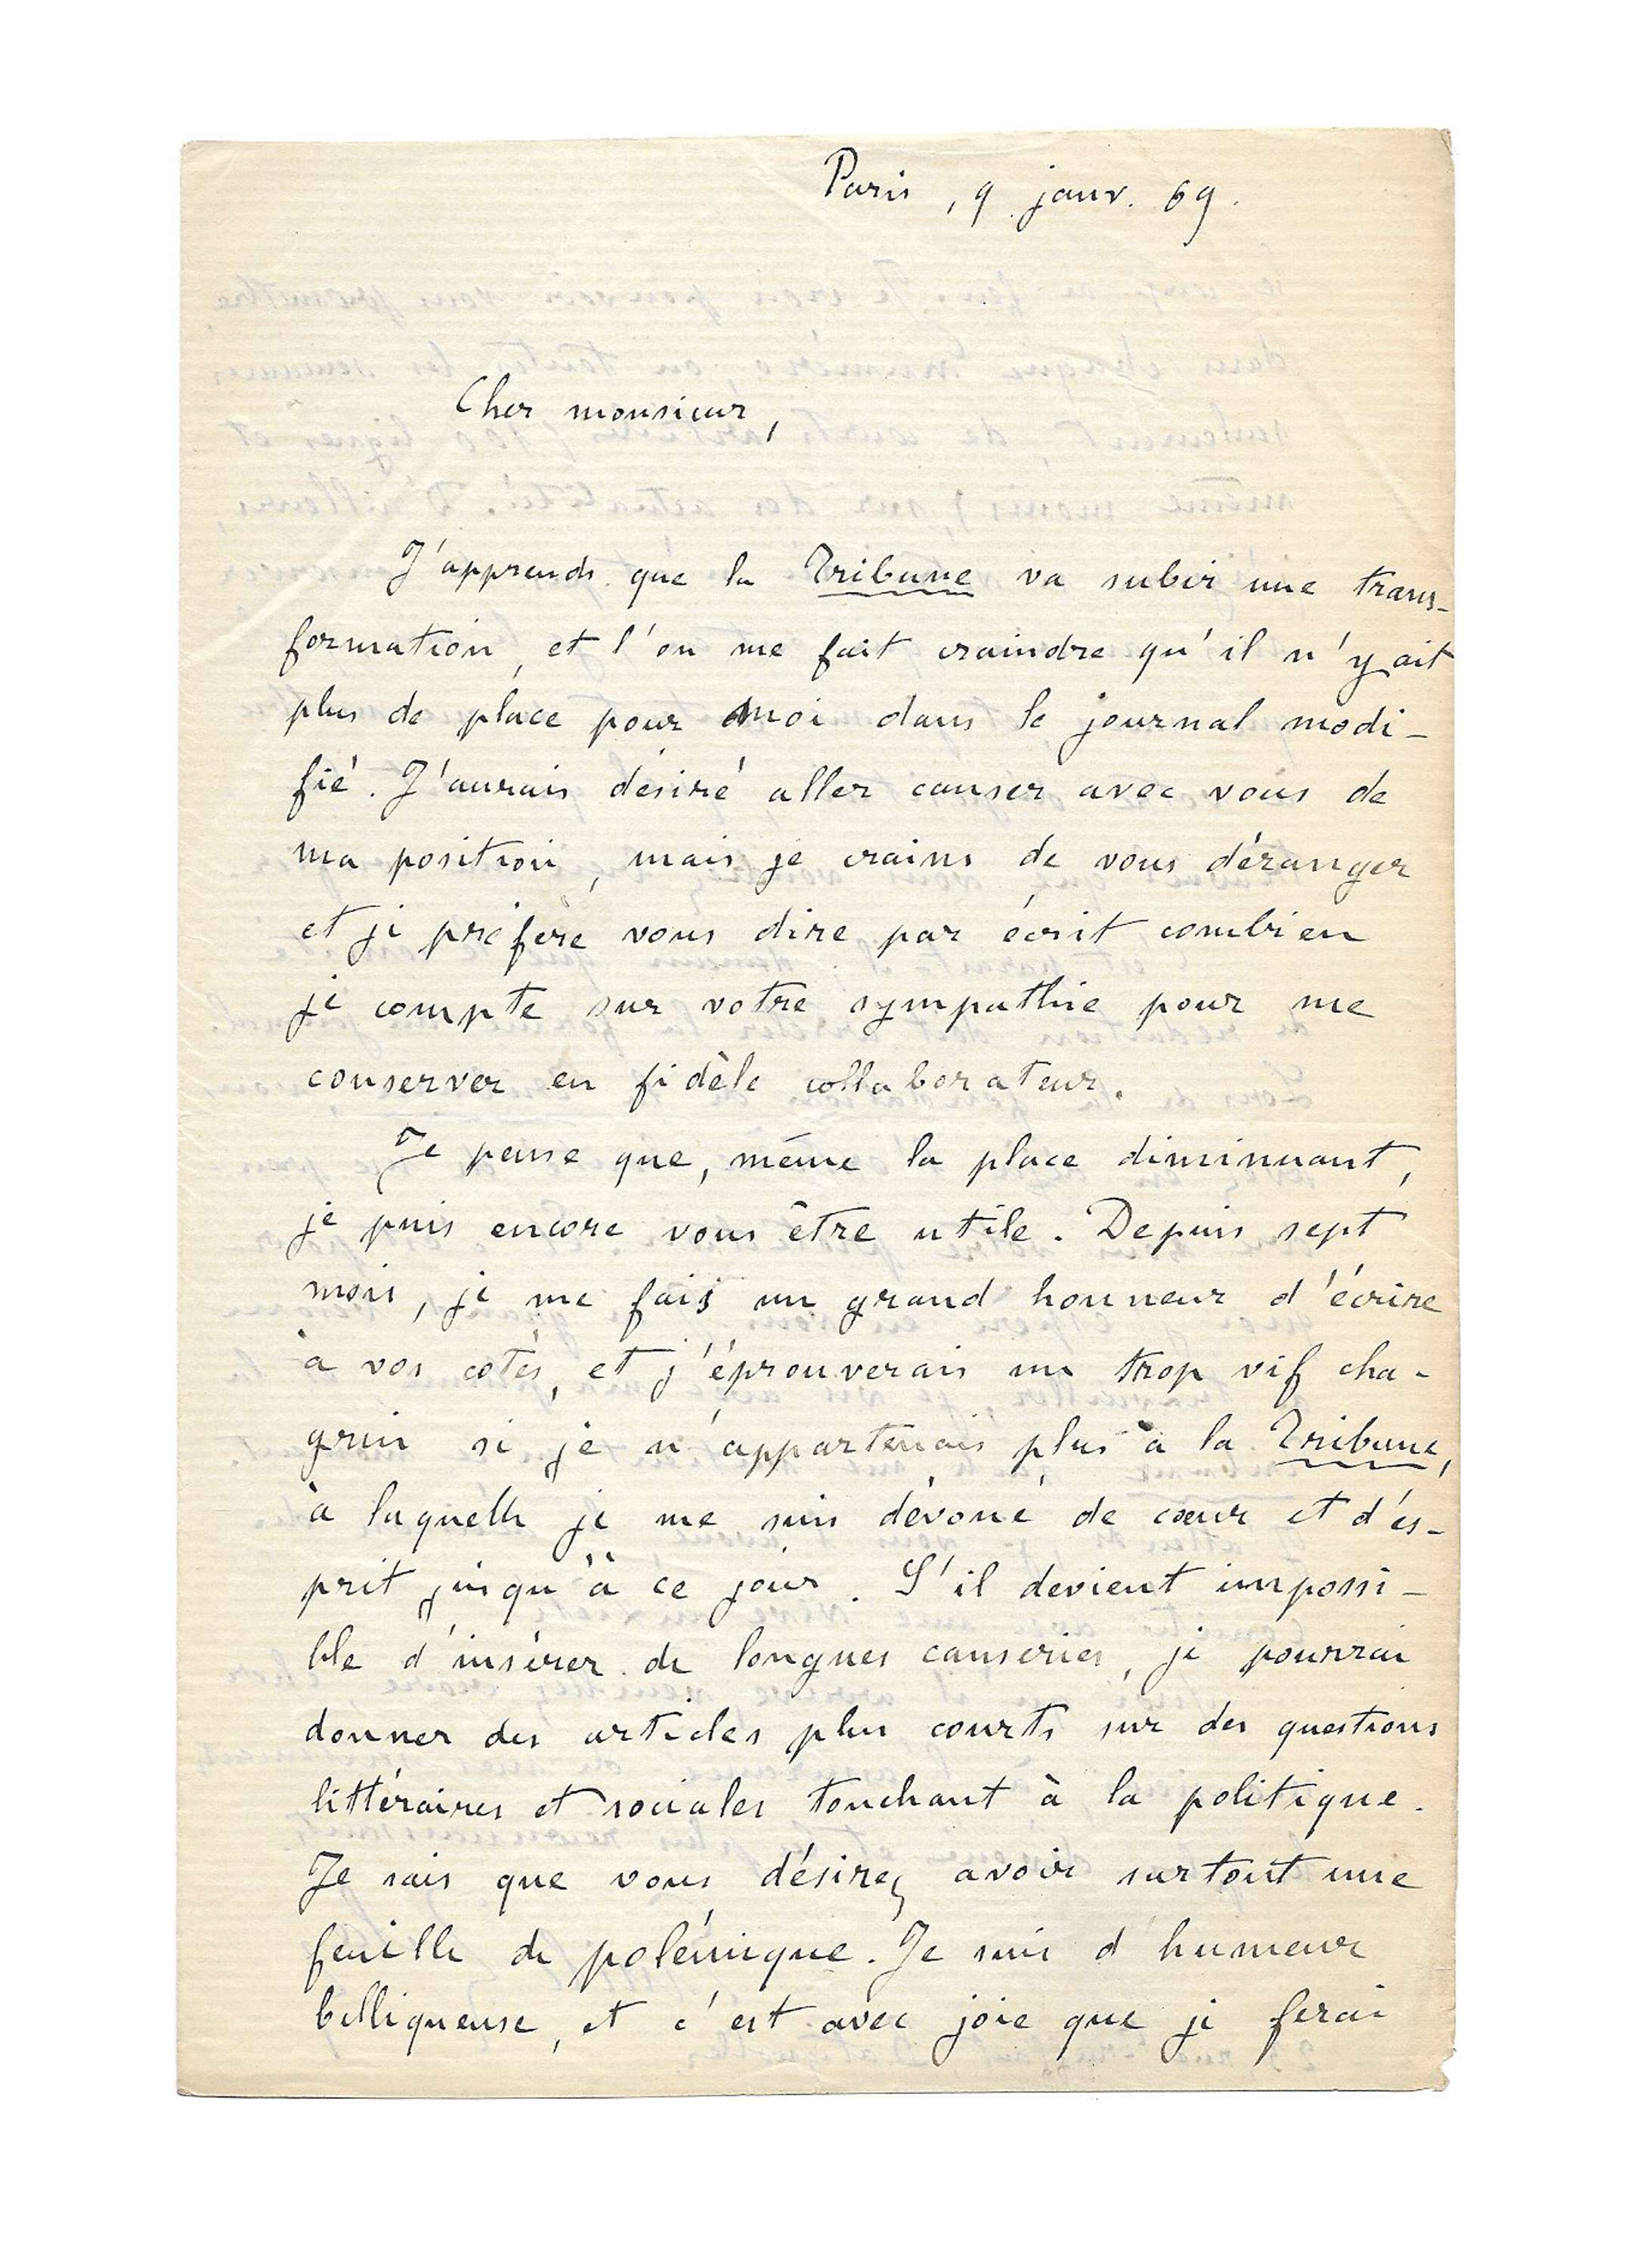 Paris, 9 janv. 69.
Cher monsieur,
J'apprends que la Tribune va subir une trans-
formation, et l'on me fait craindre qu'il n'y ait
plus de place pour moi dans le journal modi-
fié. J'aurais désiré aller causer avec vous de
ma position, mais je crains de vous déranger
et je préfère vous dire par écrit combien
je compte sur votre sympathie pour me
conserver en fidèle collaborateur.
Je pense que, même la place diminuant,
je puis encore vous être utile. Depuis sept
mois, je me fais un grand honneur d'écrire
à vos cotés, et j'éprouverais un trop vif cha-
grin si je n'appartenais plus à la Tribune,
à laquelle je me suis dévoué de cœur et d'es-
prit jusqu'à ce jour. S'il devient impossi-
ble d'insérer de longues causeries, je pourrai
donner des articles plus courts sur des questions
littéraires et sociales touchant à la politique.
Je sais que vous désirez avoir surtout une
feuille de polémique. Je suis d'humeur
belliqueuse, et c'est avec joie que je ferai